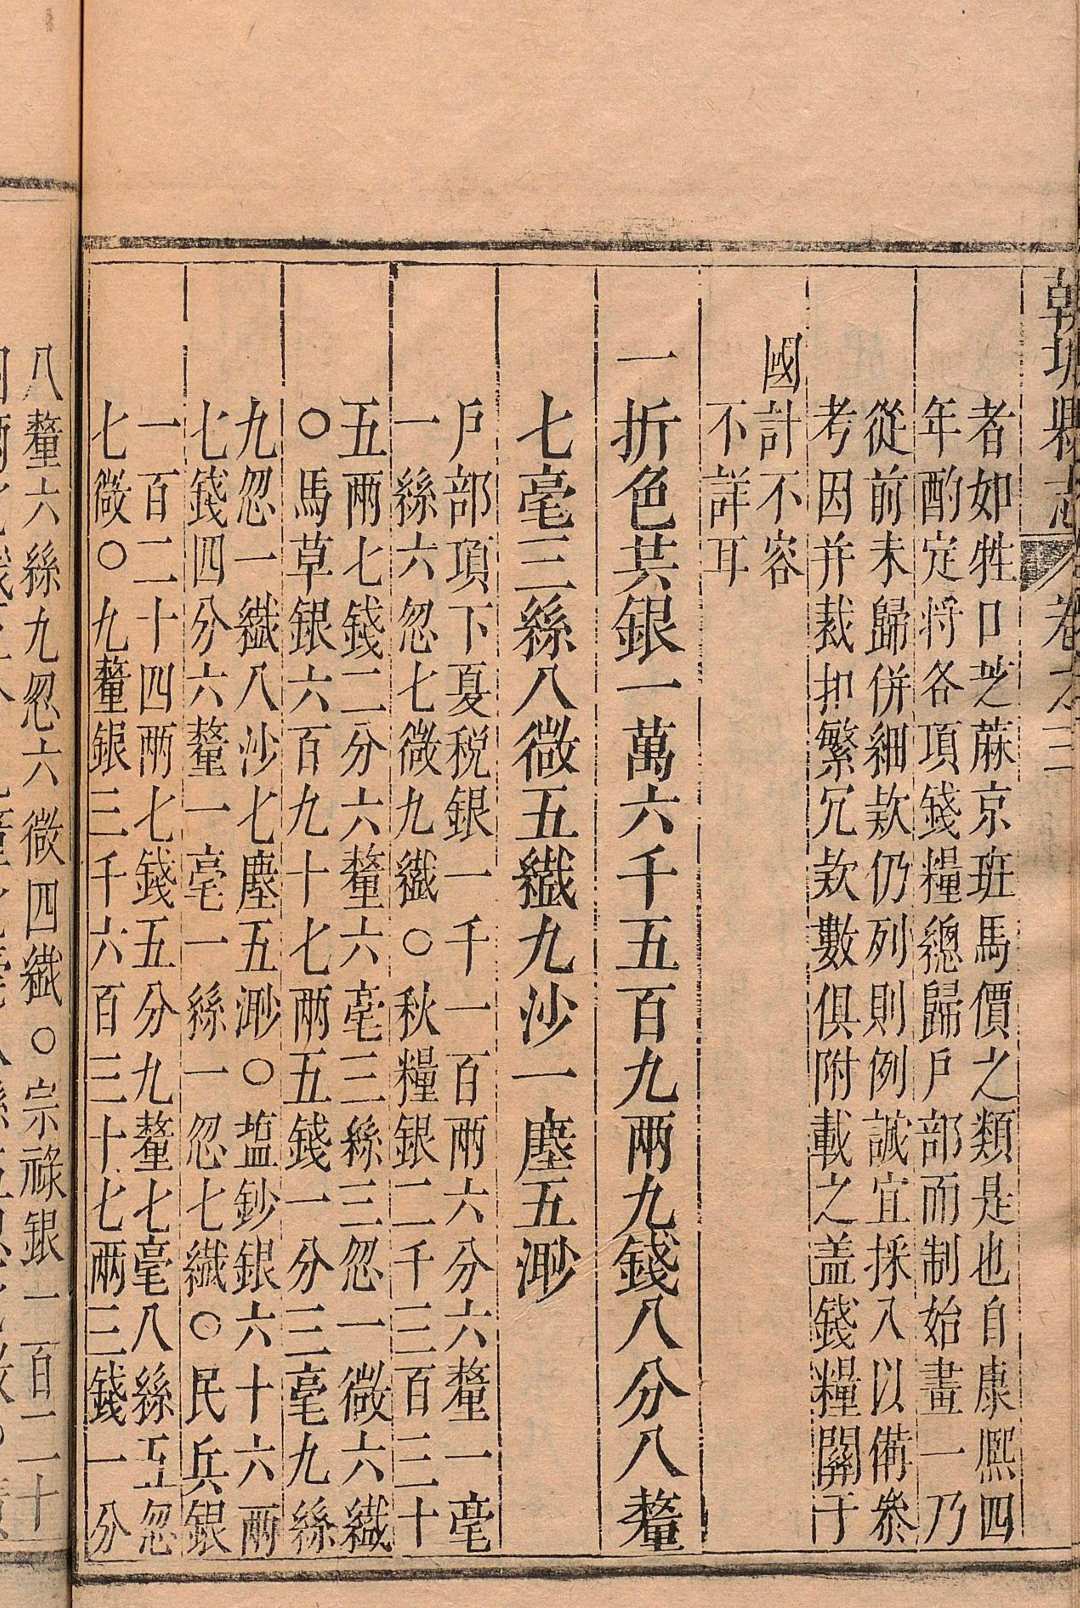 朝城縣志卷之三
者如牲口芝蔴京班馬價之類是也自康熙四
年酌定將各項錢糧總歸戶部而制始畫一乃
從前未歸併細款仍列則例誠宜採入以備叅
考因并裁扣繁冗款數俱附載之盖錢糧關于
國計不容
不詳耳
一折色共銀一萬六千五百九兩九錢八分八釐
七毫三絲八微五纖九沙一塵五渺
戶部項下夏稅銀一千一百兩六分六釐一毫
一絲六忽七微九纖○秋糧銀二千三百三十
五兩七錢二分六釐六毫三絲三忽一微六纖
○馬草銀六百九十七兩五錢一分三毫九絲
九忽一纖八沙七塵五渺○塩鈔銀六十六兩
七錢四分六釐一毫一絲一忽七纖○民兵銀
一百二十四兩七錢五分九釐七毫八絲五忽
七微○九釐銀三千六百三十七兩三錢一分
八釐六絲九忽六微四纖○宗祿銀一百二十